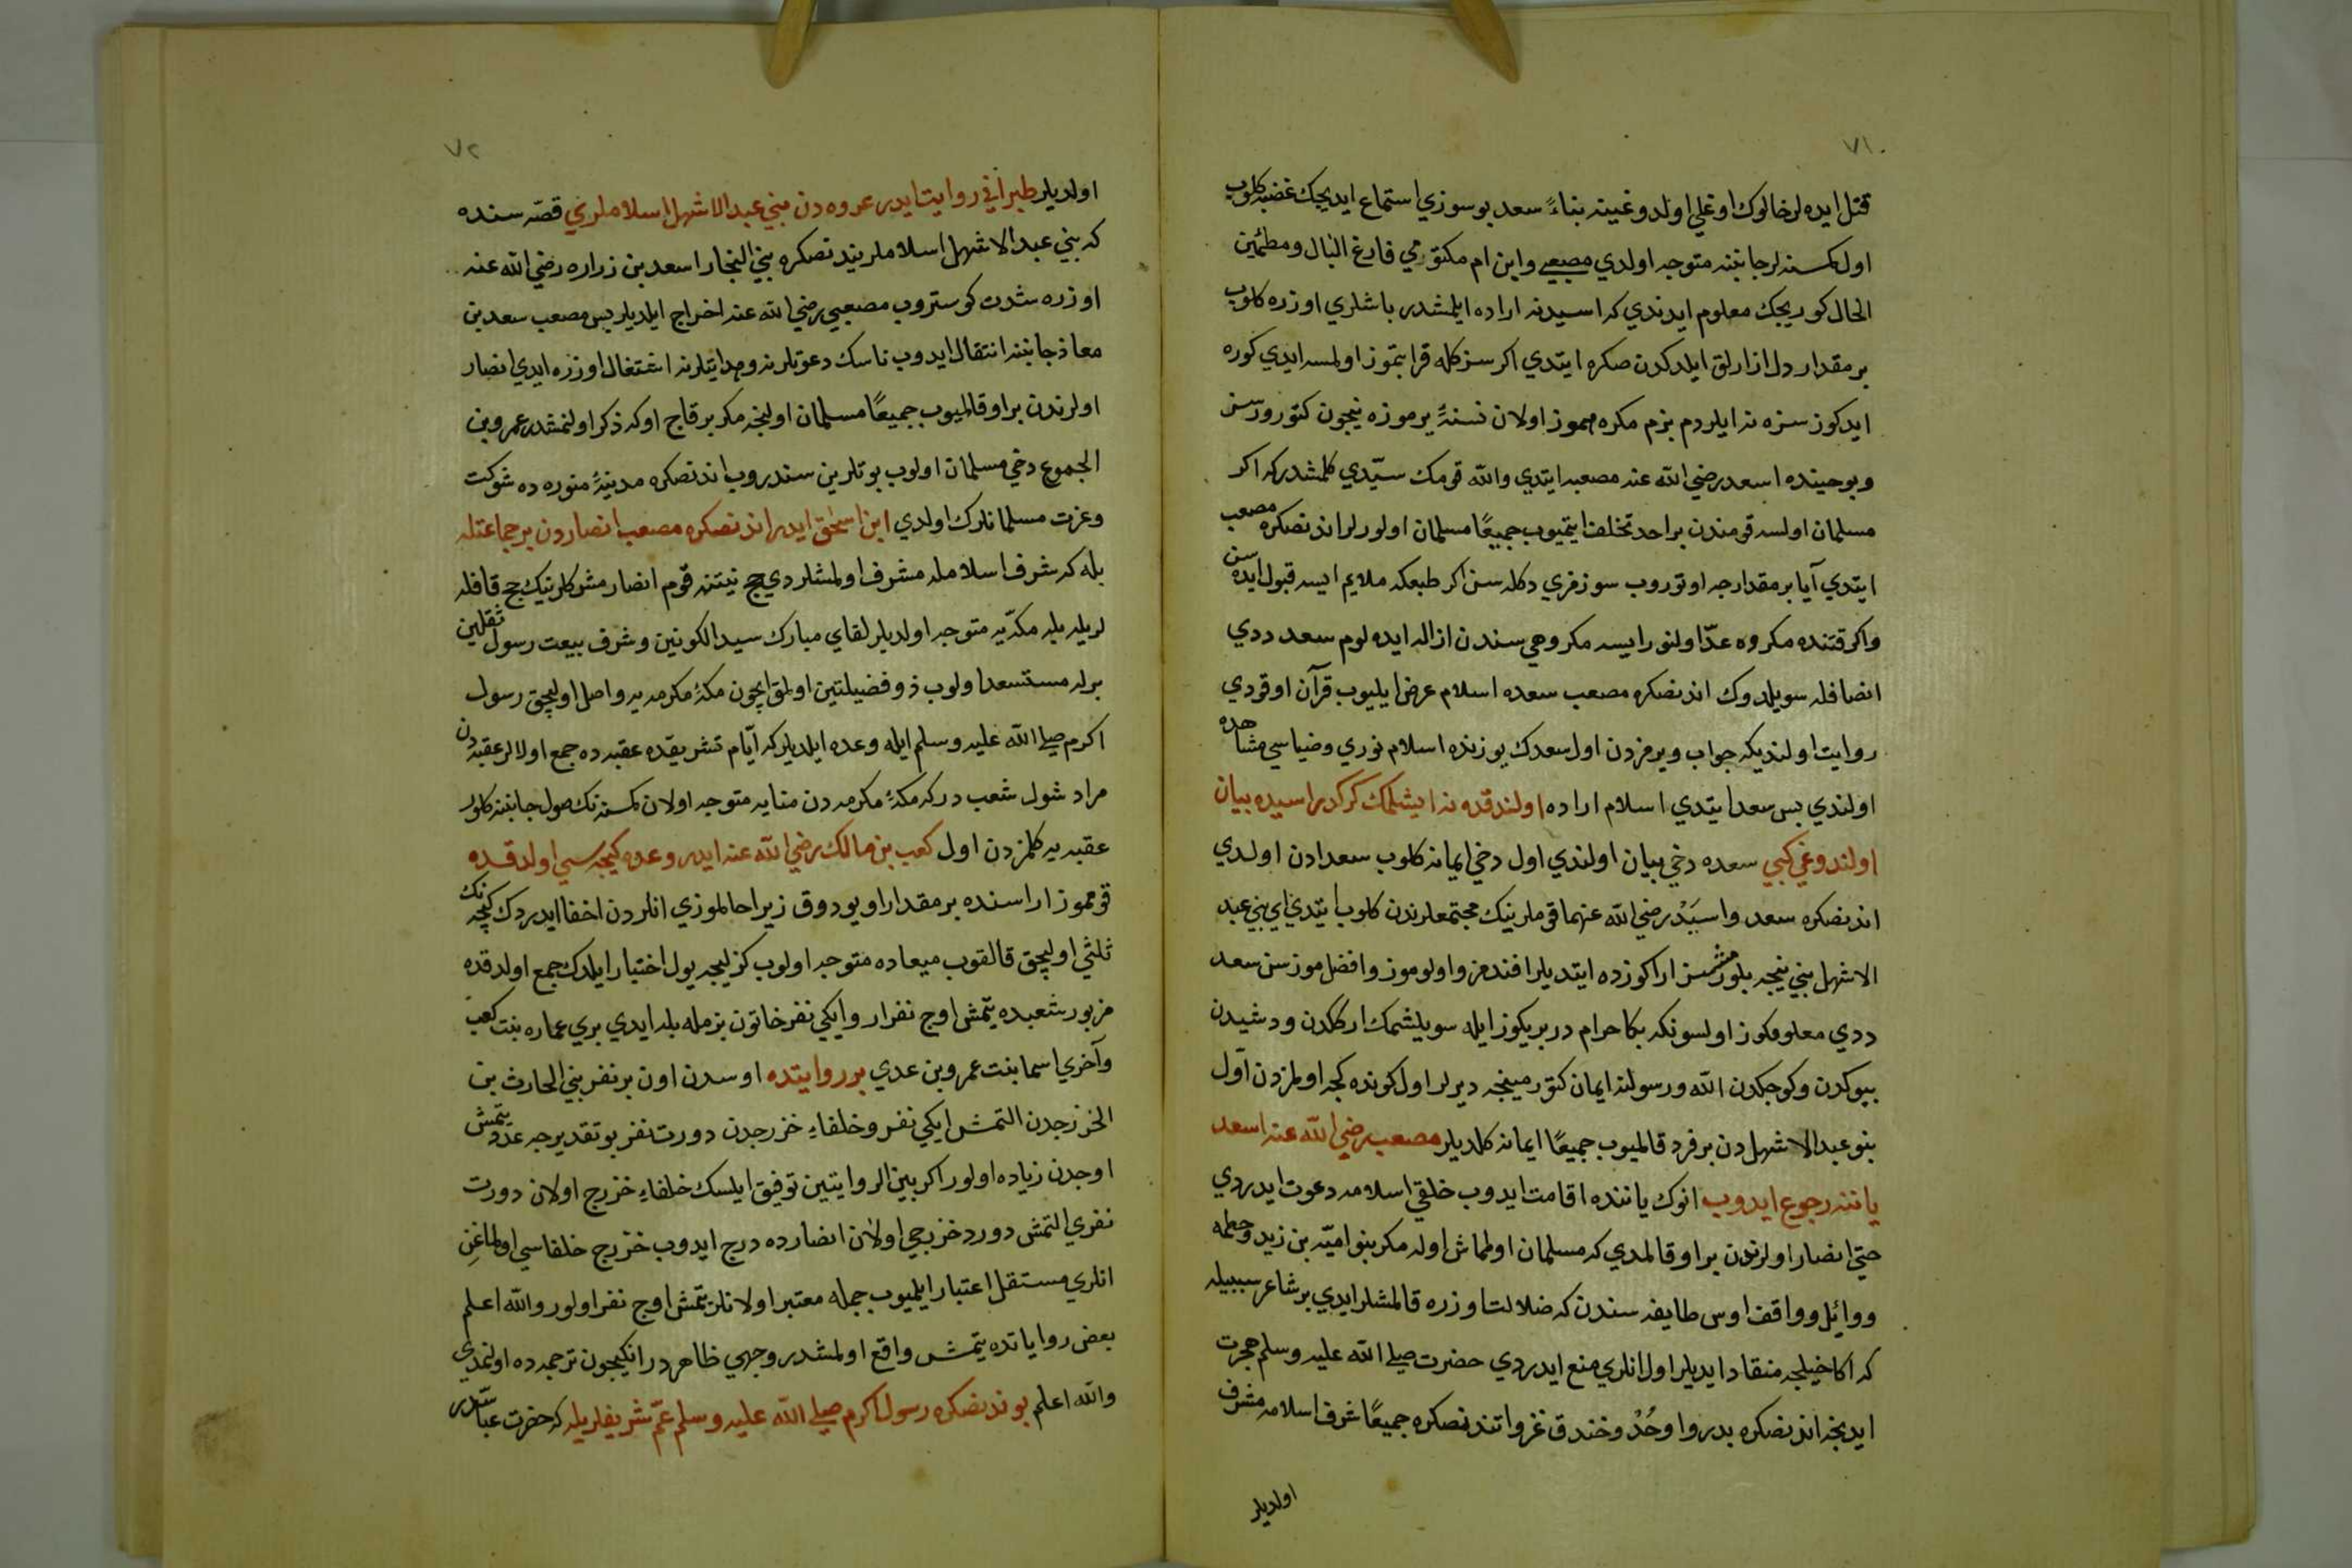 ٧١
قتل ايده لر خالوك اوغلي اولدوغينه بناءً سعد بو سوزي استماع ايديجك غضبه كلوب
اول كمسنه لر جانبنه متوجه اولدي مصعبي وابن ام مكتومي فارغ البال ومطمئين
الحال كوريجك معلوم ايدندي كه اسيدنه اراده ايلمشدر باشلري اوزره كلوب
بر مقدار دل ازارلق ايلدكدن صكره ايتدي اكر سزكله قرابتموز اولمسه ايدي كوره
ايدكوز سزه نه ايلردم بزم مكره مموز اولان نسنهٔ يرموزه نيجون كتورورسن
وبو حينده اسعد رضي الله عنه مصعبه ايتدي والله قومك سيّدي كلمشدر كه اكر
مسلمان اولسه قومندن بر احد تخلف ايتميوب جميعًا مسلمان اولورلر اندنصكره مصعب
ايتدي آيا بر مقدارجه اوتوروب سوزمزي دكله سن اكر طبعكه ملايم ايسه قبول ايده سن
واكر قتنده مكروه عدّ اولنور ايسه مكروهي سندن ازاله ايده لوم سعد ددي
انصافله سويلدوك اندنصكره مصعب سعده اسلام عرض ايليوب قرآن اوقودي
روايت اولنديكه جواب ويرمزدن اول سعدك يوزنده اسلام نوري وضياسي مشاهده
اولندي بس سعد ايتدي اسلام اراده اولندقده نه ايشلمك كركدر اسيده بيان
اولندوغي كبي سعده دخي بيان اولندي اول دخي ايمانه كلوب سعادن اولدي
اندنصكره سعد واسيَدْ رضي الله عنهما قوملرينك مجتمعلرندن كلوب ايتدي اي بني عبد
الاشهل بني نيجه بلورمشسز اراكوزده ايتديلر افندمز واولوموز وافضل موزسن سعد
ددي معلومكوز اولسونكه بكا حرام در بريكوز ايله سويلشمك اركلدن ودشيدن
بيوكدن وكوجكدن الله ورسولنه ايمان كتورمينجه ديرلر اول كونده كجه اولمزدن اول
بنو عبد الاشهلدن بر فرد قالميوب جميعًا ايمانه كلديلر مصعب رضي الله عنه اسعد
ياننه رجوع ايدوب انوك ياننده اقامت ايدوب خلقي اسلامه دعوت ايدردي
حتى انصار اولرندن بر او قالمدي كه مسلمان اولماش اوله مكر بنو اميّه بن زيد وحطمه
ووائل وواقف اوس طايفه سندن كه ضلالت اوزره قالمشلر ايدي بر شاعر سببيله
كه اكا خيليجه منقاد ايديلر اول انلري منع ايدردي حضرت صلى الله عليه وسلم هجرت
ايدنجه اندنصكره بدر واوحُدْ وخندق غزواتندنصكره جميعًا شرف اسلامه مشرف
اولديلر
٧٢
اولديلر طبراني روايت ايدر عروه دن بني عبد الاشهل اسلاملري قصّه سنده
كه بني عبد الاشهل اسلاملريندنصكره بني النجار اسعد بن زراره رضي الله عنه
اوزره شدت كوستروب مصعبي رضي الله عنه اخراج ايلديلر بس مصعب سعد بن
معاذ جانبنه انتقال ايدوب ناسك دعوتلرنه وهدايتلرنه اشتغال اوزره ايدي انصار
اولرندن بر او قالميوب جميعًا مسلمان اولنجه مكر بر قاج او كه ذكر اولنمشدر عمرو بن
الجموع دخي مسلمان اولوب بوتلرين سندروب اندنصكره مدينهٔ منوره ده شوكت
وعزت مسلمانلرك اولدي ابن اسحٰق ايدر اندنصكره مصعب انصاردن بر جماعتله
بله كه شرف اسلامله مشرف اولمشلردي حج نيتنه قوم انصار مشركلرينك حج قافله
لريله بله مكّه يه متوجه اولديلر لقاي مبارك سيد الكونين وشرف بيعت رسول ثقلين
برله مستسعد اولوب ذو فضيلتين اولمق ايچون مكهٔ مكرمه يه واصل اوليجق رسول
اكرم صلى الله عليه وسلم ايله وعده ايلديلر كه ايّام تشريقده عقبه ده جمع اولالر عقبه دن
مراد شول شعب در كه مكهٔ مكرمه دن منايه متوجه اولان كمسنه نك صول جانبنه كلور
عقبه يه كلمزدن اول كعب بن مالك رضي الله عنه ايدر وعده كيجه سي اولدقده
قوممز اراسنده بر مقدار اويودوق زيرا حالموزي انلردن اخفا ايدردك كيجه نك
ثلثي اوليجق قالقوب ميعاده متوجه اولوب كزليجه يول اختيار ايلدك جمع اولدقده
مزبور شعبده يتمش اوج نفر ار وايكي نفر خاتون بزمله بله ايدي بري عماره بنت كعب
وآخري اسما بنت عمرو بن عدي بر روايتده اوسدن اون بر نفر بني الحارث بن
الخزرجدن التمش ايكي نفر وخلفاء خزرجدن دورت نفر بو تقديرجه عدد يتمش
اوجدن زياده اولور اكر بين الروايتين توفيق ايلسك خلفاء خزرج اولان دورت
نفري التمش دورد خزرجي اولان انصارده درج ايدوب خزرج خلفاسي اولماغن
انلري مستقل اعتبار ايلميوب جمله معتبر اولانلر يتمش اوج نفر اولور والله اعلم
بعض رواياتده يتمش واقع اولمشدر وجهي ظاهر در انكيجون ترجمه ده اولنمدي
والله اعلم بوندنصكره رسول اكرم صلى الله عليه وسلم عمّ شريفلريله كه حضرت عباسدر